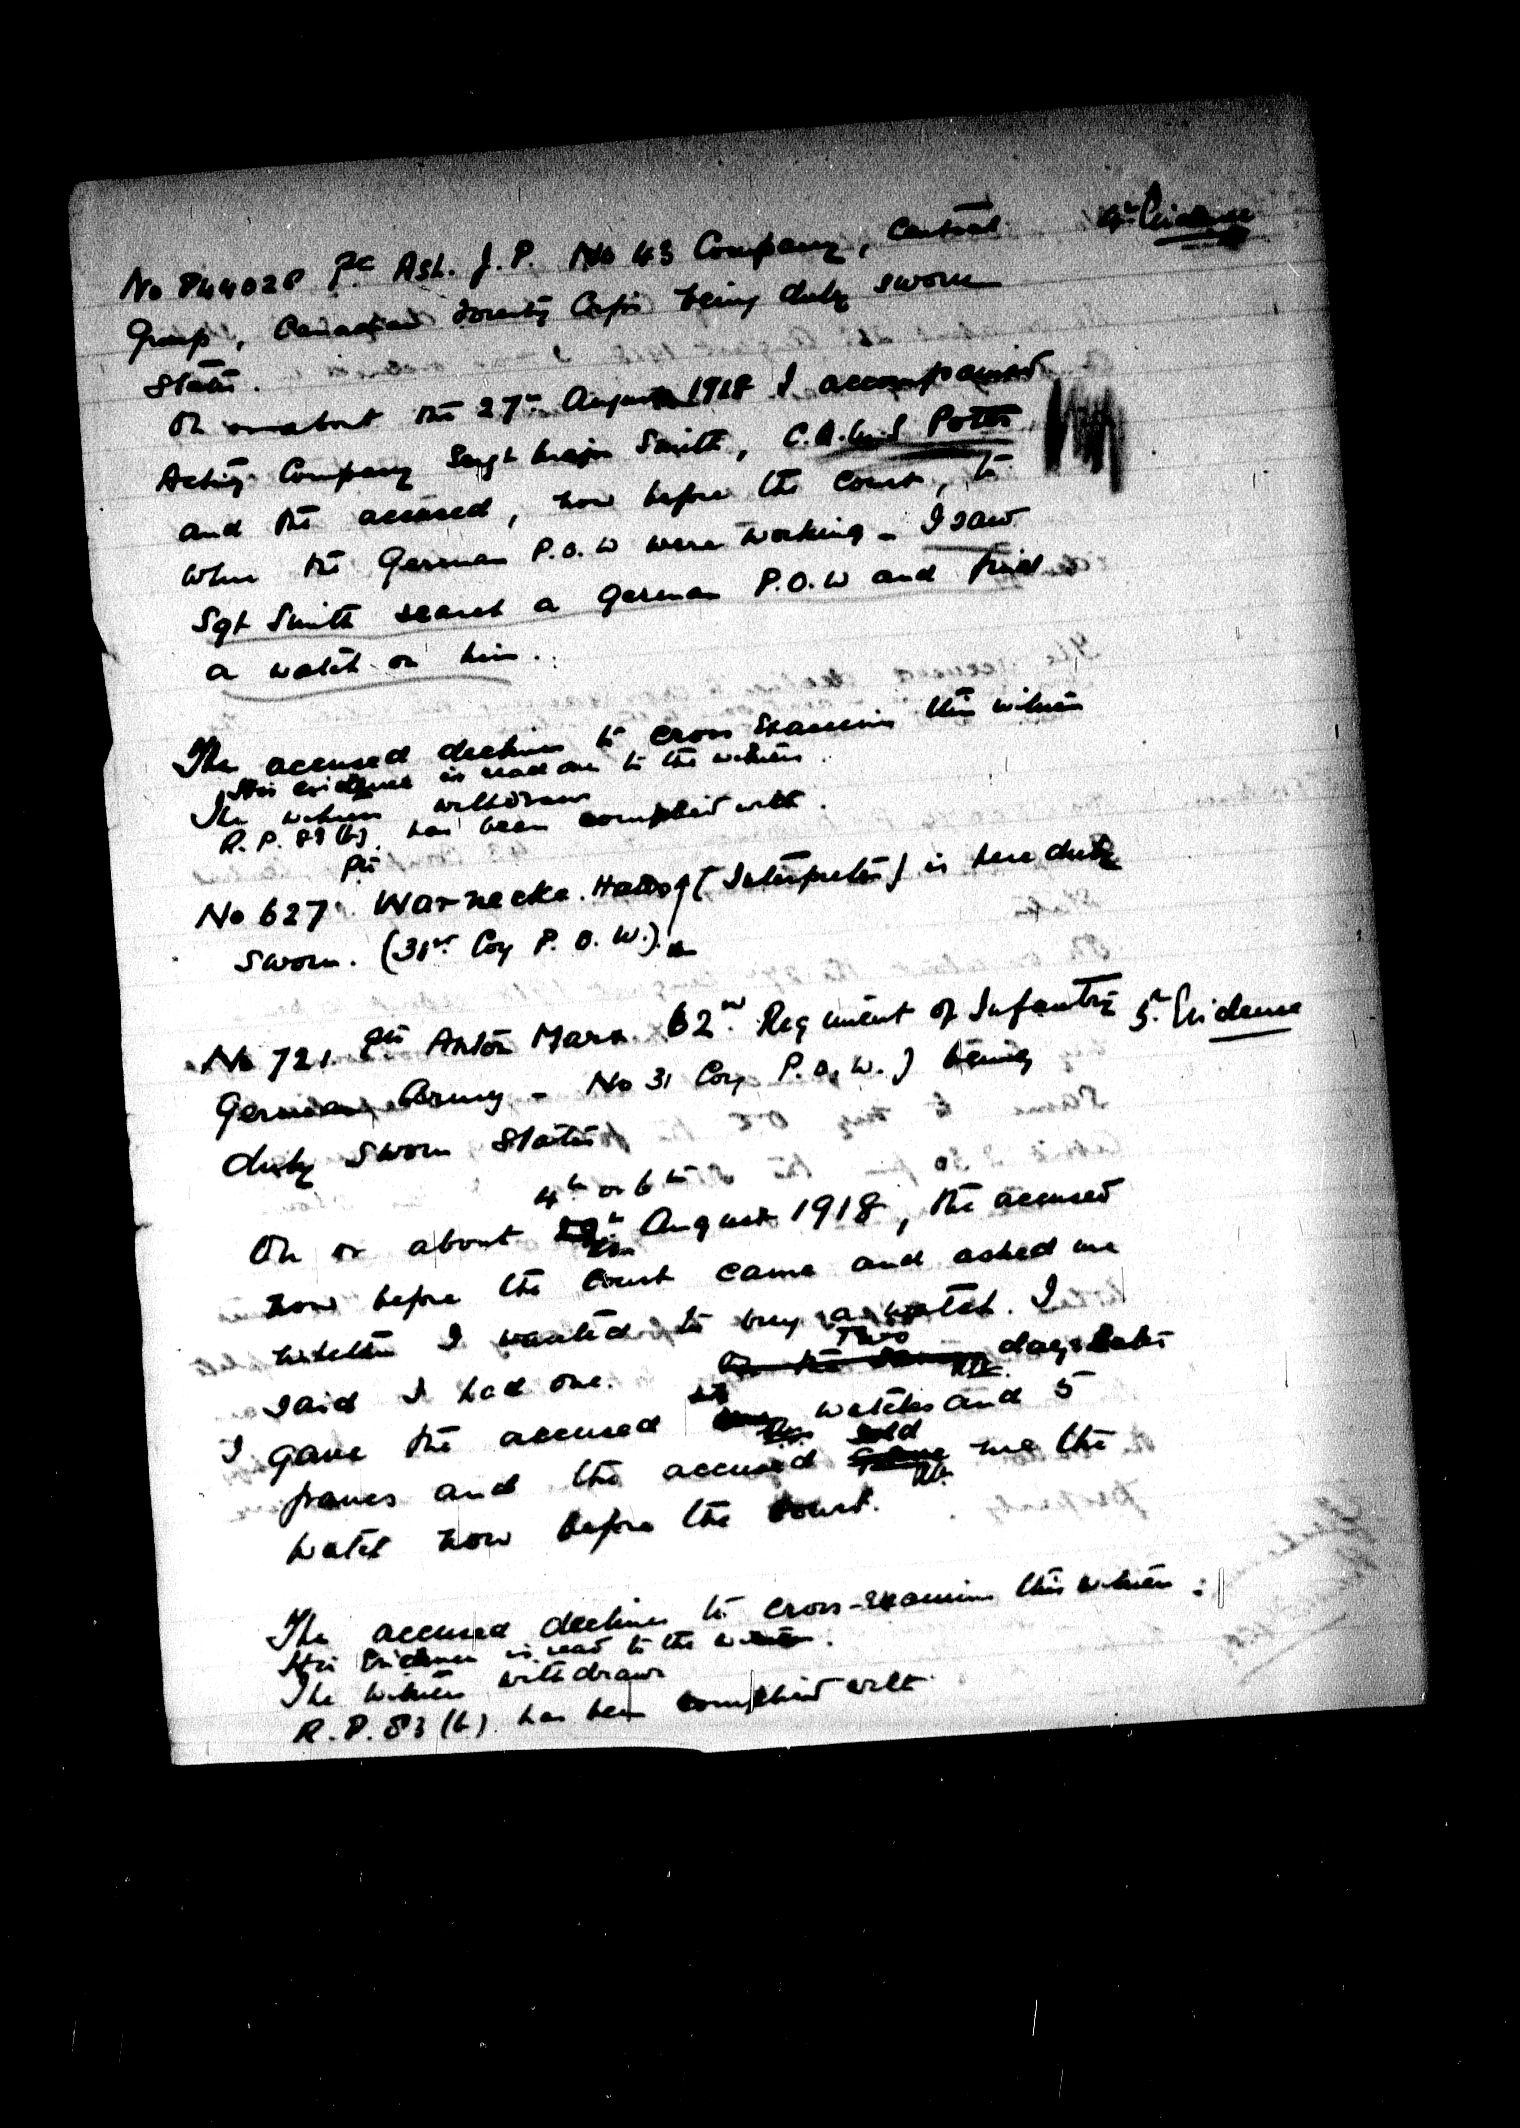 4th Evidence
No 844028 Pte Ash. J. P. No 43 Company, Central
Group, Canadian Forestry Corps being duly sworn
States.
On or about the 27th August 1918 I accompanied
Acting Company Sergt Major Smith, C.Q.M.S Potts
and the accused, now before the Court, to
where the German P.O.W were working - I saw
Sgt Smith search a German P.O.W and find
a watch on him.
The accused declines to cross Examine this witness
His evidence is read over to the witness.
The witness withdraws
R.P. 83 (b) has been complied with.
Pte
No 627 Warnecke. Hans (Interpreter) is here duly
sworn. (31st Coy P.O.W.)
5th Evidence
No 721. Pte Anton Marx 62nd Regiment of Infantry
German Army - No 31 Coy P.O.W.) being
duly sworn States
4th or 6th
On or about August 1918, the accused
now before the Court came and asked me
whether I wanted to buy a watch. I
said I had one. Two days later
I gave the accused watches and 5
francs and the accused sold me the
watch now before the Court.
The accused declines to cross-examine this witness.
His Evidence is read to the witness.
The witness withdraws
R.P. 83 (b) has been complied with